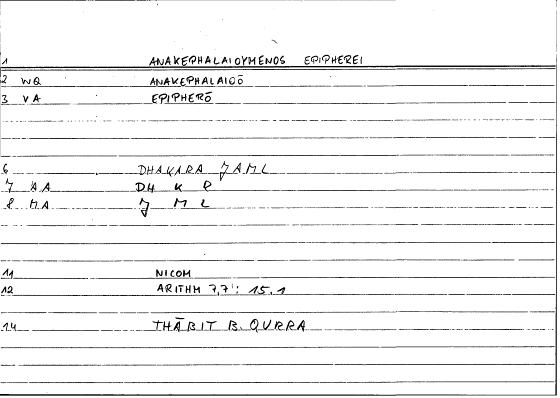 1 ANAKEPHALAIOYMENOS EPIPHEREI
2 WQ ANAKEPHALAIOŌ
3 VA EPIPHERŌ
6 DHAKARA JAML
7 AA DH K R
8 MA J M L
11 NICOM
12 ARITHM 7,7; 15.1
14 THĀBIT B. QURRA